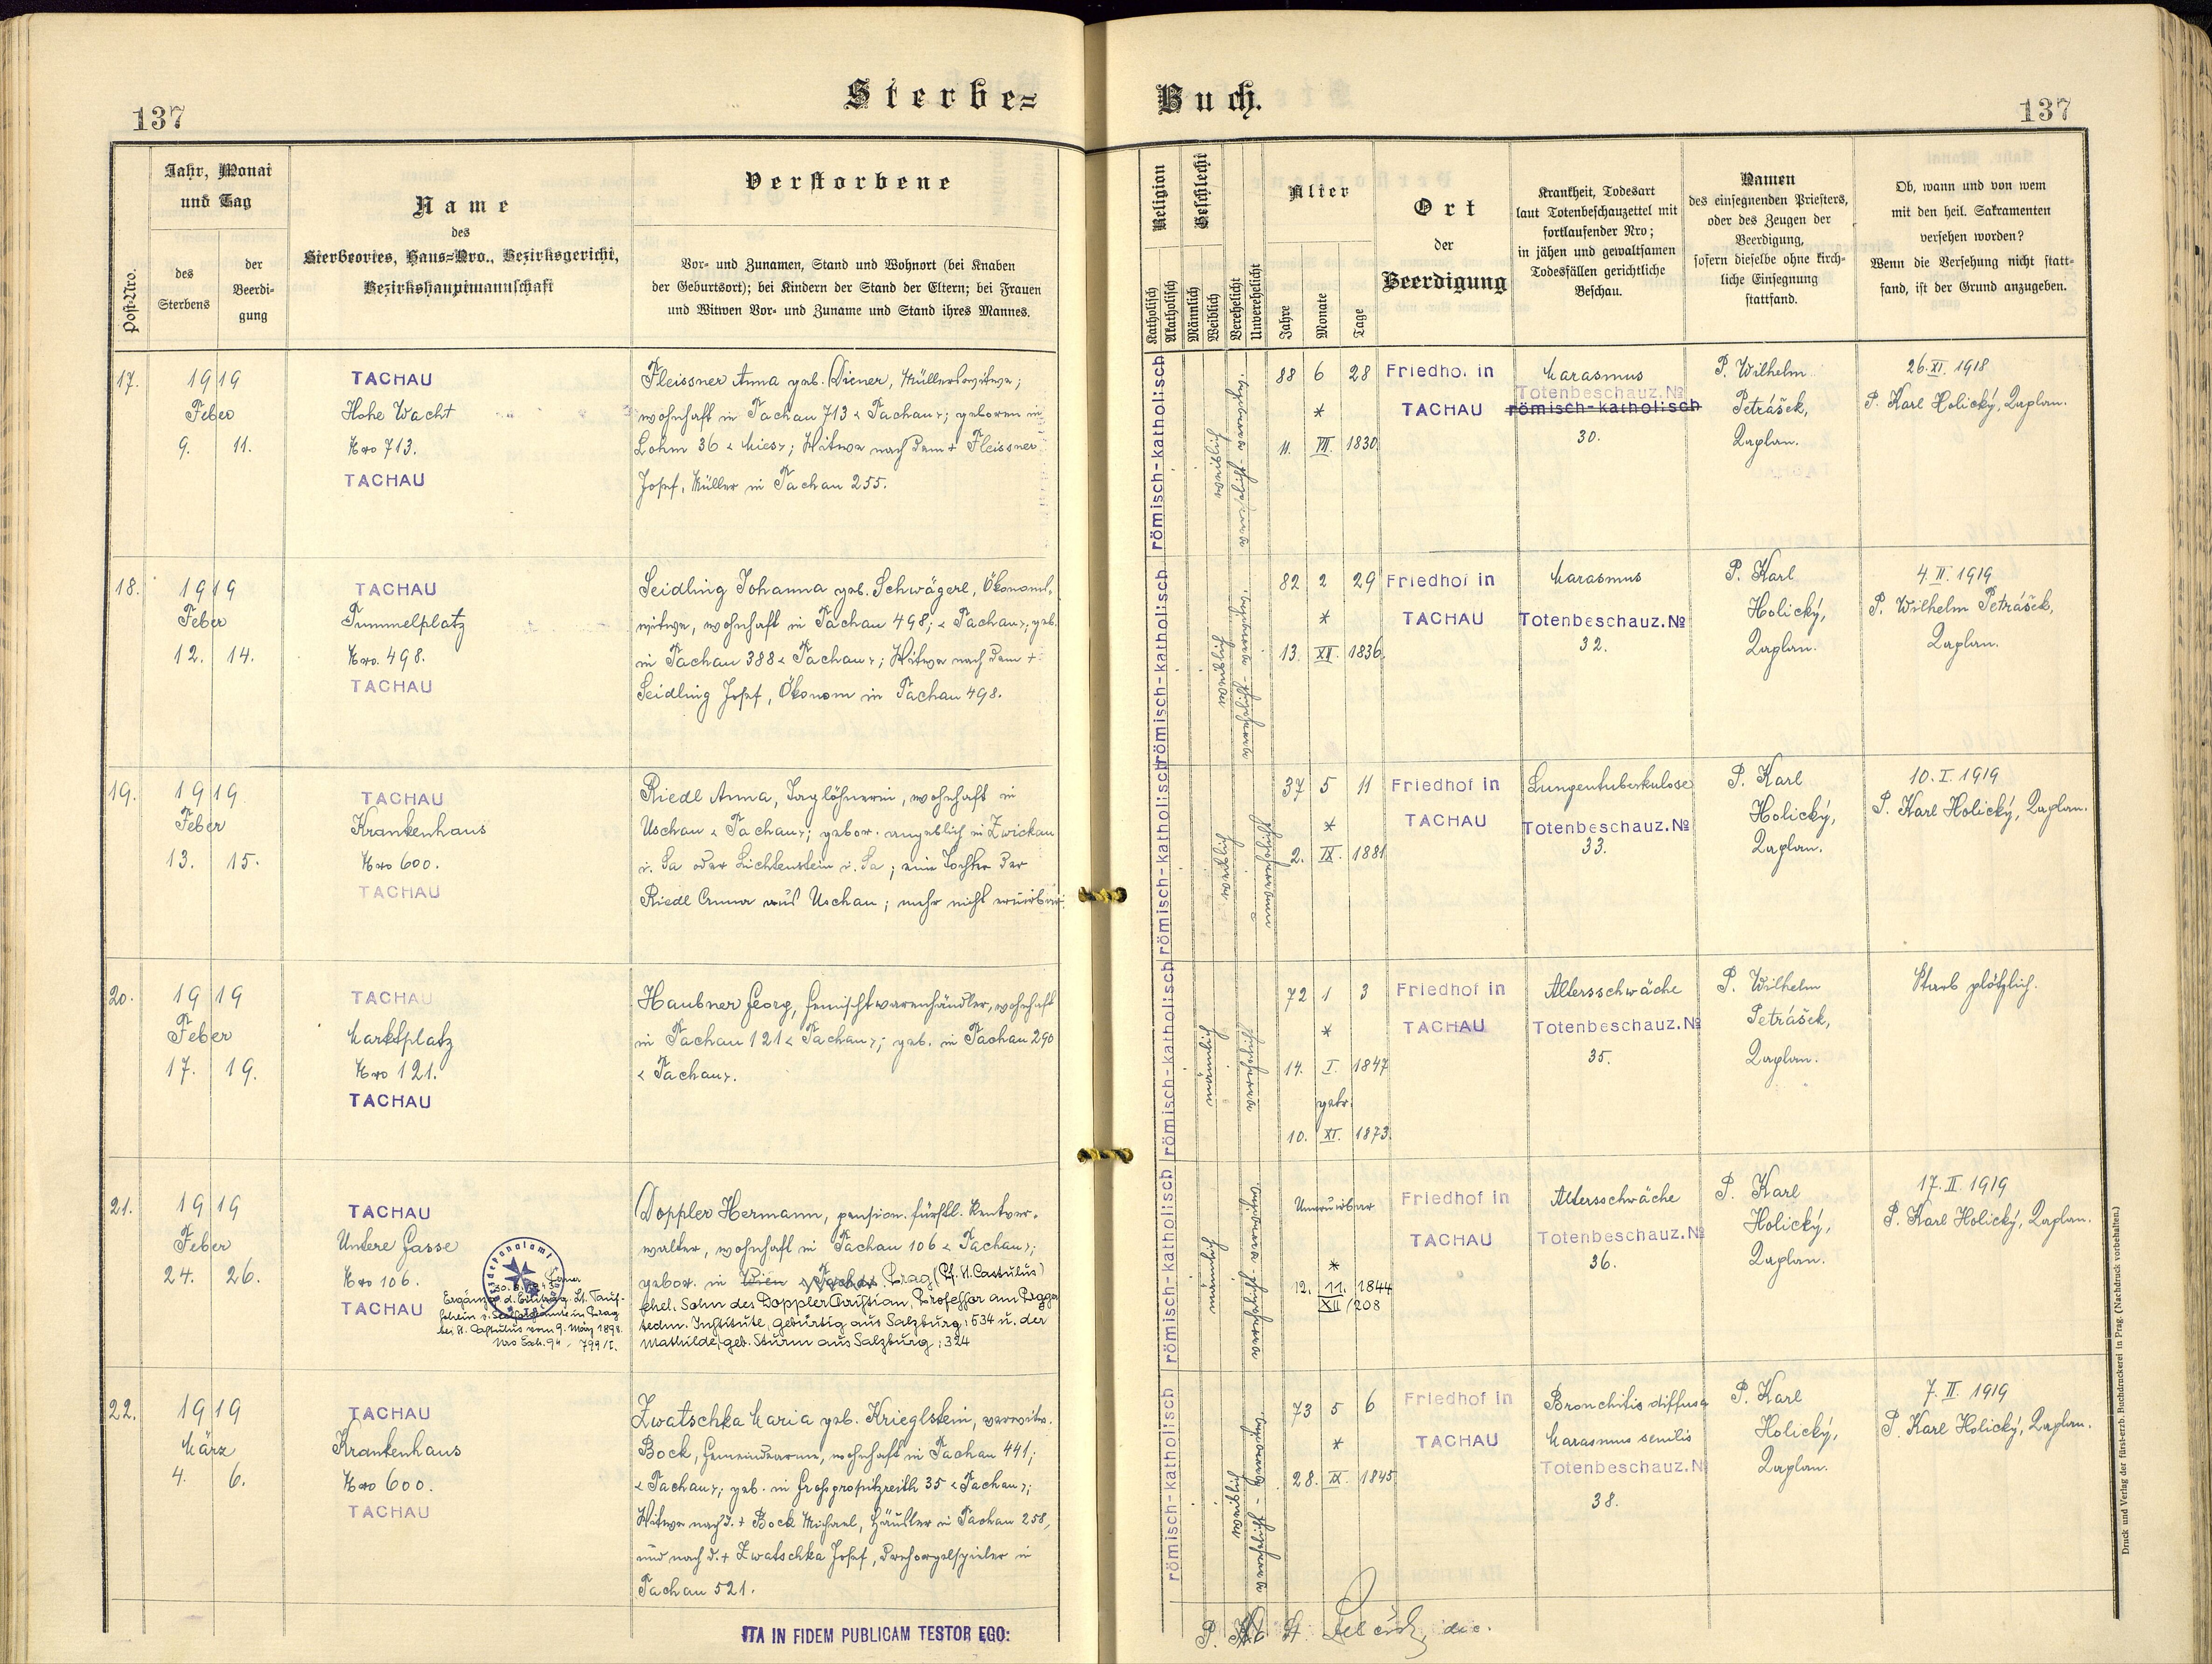 137
Sterbe=
Buch.
137
Post-Nro.
Jahr, Monat
und Tag
des
Sterbens
der
Beerdi-
gung
Name
des
Sterbeortes, Haus=Nro., Bezirksgericht,
Bezirkshauptmannschaft
Verstorbene
Vor- und Zunamen, Stand und Wohnort (bei Knaben
der Geburtsort); bei Kindern der Stand der Eltern; bei Frauen
und Witwen Vor- und Zuname und Stand ihres Mannes.
Religion
Katholisch
Akatholisch
Geschlecht
Männlich
Weiblich
Verehelicht
Unverehelicht
Alter
Jahre
Monate
Tage
Ort
der
Beerdigung
Krankheit, Todesart
laut Totenbeschauzettel mit
fortlaufender Nro;
in jähen und gewaltsamen
Todesfällen gerichtliche
Beschau.
Namen
des einsegnenden Priesters,
oder des Zeugen der
Beerdigung,
sofern dieselbe ohne kirch-
liche Einsegnung
stattfand.
Ob, wann und von wem
mit den heil. Sakramenten
versehen worden?
Wenn die Versehung nicht statt-
fand, ist der Grund anzugeben.
17.
1919
Feber
9. 11.
TACHAU
Hohe Wacht
Nro 713.
TACHAU
Fleissner Anna geb. Diener, Müllerswitwe;
wohnhaft in Tachau 713 < Tachau >; geboren in
Lohm 36 < Mies >; Witwe nach dem + Fleissner
Josef, Müller in Tachau 255.
römisch-katholisch
weiblich
88 6 28
*
11. VII. 1830.
Friedhof in
TACHAU
Marasmus
Totenbeschauz. No
römisch-katholisch
30.
P. Wilhelm
Petrášek,
Kaplan.
26. XI. 1918
P. Karl Holický, Kaplan.
18.
1919
Feber
12. 14.
TACHAU
Tummelplatz
Nro. 498.
TACHAU
Seidling Johanna geb. Schwägerl, Ökonoms-
witwe, wohnhaft in Tachau 498; < Tachau >; geb.
in Tachau 388 < Tachau >; Witwe nach dem +
Seidling Josef, Ökonom in Tachau 498.
römisch-katholisch
weiblich
82 2 29
*
13. XI. 1836.
Friedhof in
TACHAU
Marasmus
Totenbeschauz. No
32.
P. Karl
Holický,
Kaplan.
4. II. 1919
P. Wilhelm Petrášek,
Kaplan.
19.
1919
Feber
13. 15.
TACHAU
Krankenhaus
Nro 600.
TACHAU
Riedl Anna, Taglöhnerin, wohnhaft in
Uschau < Tachau >; gebor. angeblich in Zwickau
i. Sa oder Lichtenstein i. Sa; eine Tochter der
Riedl Anna aus Uschau; mehr nicht eruirbar.
römisch-katholisch
weiblich
37 5 11
*
2. IX. 1881
Friedhof in
TACHAU
Lungentuberkulose
Totenbeschauz. No
33.
P. Karl
Holický,
Kaplan.
10. I. 1919
P. Karl Holický, Kaplan.
20.
1919
Feber
17. 19.
TACHAU
Marktplatz
Nro 121.
TACHAU
Haubner Georg, Gemischtwarenhändler, wohnhaft
in Tachau 121 < Tachau >; geb. in Tachau 290
< Tachau >.
römisch-katholisch
männlich
72 1 3
*
14. I. 1847
getr.
10. XI. 1873.
Friedhof in
TACHAU
Altersschwäche
Totenbeschauz. No
35.
P. Wilhelm
Petrášek,
Kaplan.
Starb plötzlich.
21.
1919
Feber
24. 26.
TACHAU
Untere Gasse
Nro 106.
TACHAU
Doppler Hermann, pension. fürstl. Rentver-
walter, wohnhaft in Tachau 106 < Tachau >;
gebor. in Wien < Tachau Prag (Pf. St. Castulus)
ehel. Sohn des Doppler Christian, Professor am Prager
techn. Institute, gebürtig aus Salzburg, 534 u. der
Mathilde, geb. Sturm aus Salzburg, 324
bei St. Castulus vom 9. März 1898.
römisch-katholisch
männlich
Uneruirbar
*
12. 11. 1844
XII / 208
Friedhof in
TACHAU
Altersschwäche
Totenbeschauz. No
36.
P. Karl
Holický,
Kaplan.
17. II. 1919
P. Karl Holický, Kaplan.
22.
1919
März
4. 6.
TACHAU
Krankenhaus
Nro 600.
TACHAU
Zwatschka Maria geb. Krieglstein, verwitw.
Bock, Gemeindearme, wohnhaft in Tachau 441;
< Tachau >; geb. in Grossgropitzreith 35 < Tachau >;
Witwe nach d. + Bock Michael, Häusler in Tachau 258,
und nach d. + Zwatschka Josef, Drehorgelspieler in
Tachau 521.
römisch-katholisch
weiblich
73 5 6
*
28. IX. 1845
Friedhof in
TACHAU
Bronchitis diffusa
Marasmus senilis
Totenbeschauz. N
38.
P. Karl
Holický,
Kaplan.
7. II. 1919
P. Karl Holický, Kaplan.
ITA IN FIDEM PUBLICAM TESTOR EGO:
Druck und Verlag der fürst-erzb. Buchdruckerei in Prag. (Nachdruck vorbehalten.)